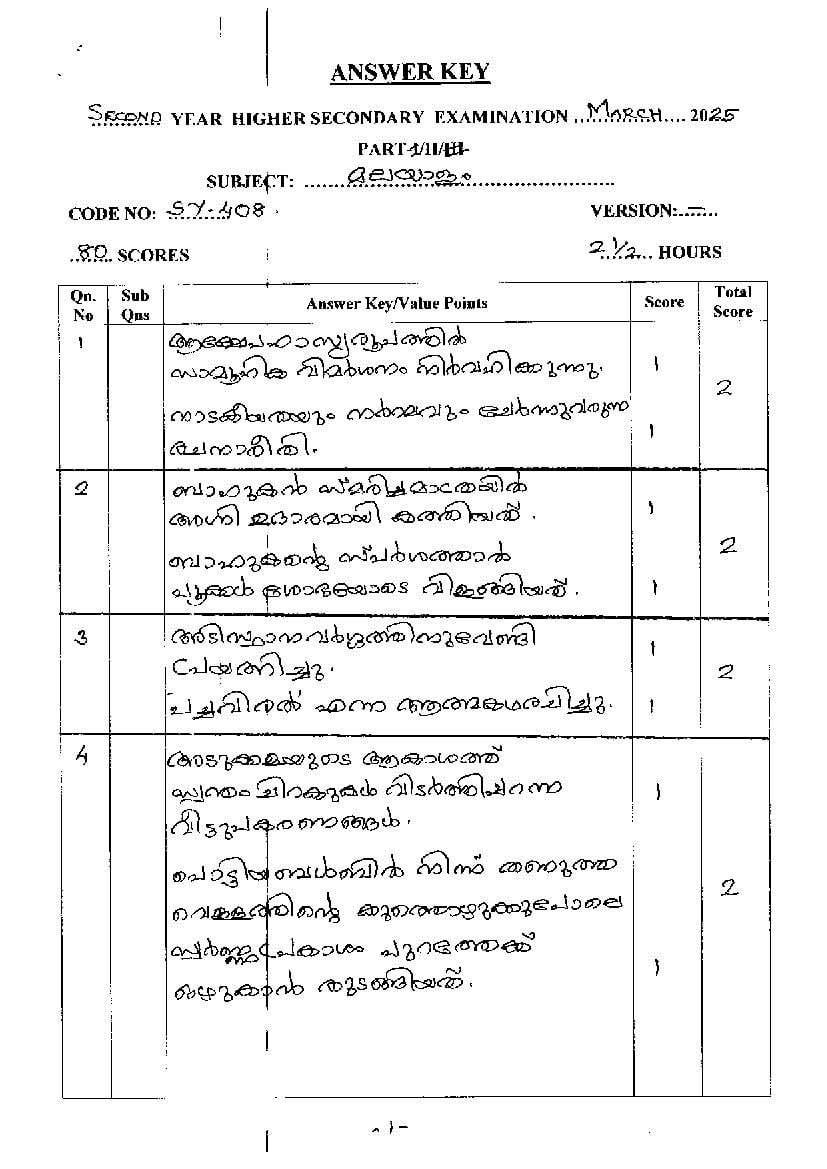 ANSWER KEY
SECOND YEAR HIGHER SECONDARY EXAMINATION ..MARCH.... 2025
PART-I/II/III
SUBJECT: മലയാളം
CODE NO: SY-408.
VERSION:..–....
80 SCORES
2½ HOURS
Qn. No Sub Qns Answer Key/Value Points Score Total Score
1 ആക്ഷേപഹാസ്യരൂപത്തിൽ
സാമൂഹിക വിമർശനം നിർവഹിക്കുന്നു. 1 2
നാടകീയതയും നർമ്മവും ചേർന്നുവരുന്ന 1
രചനാരീതി.
2 ബാഹുകൻ സ്മരിച്ചമാത്രയിൽ 1
അഗ്നി ഉദാരമായി കത്തിയത്. 2
ബാഹുകന്റെ സ്പർശത്താൽ
പൂക്കൾ ശോഭയോടെ വിളങ്ങിയത്. 1
3 അടിസ്ഥാനവർഗ്ഗത്തിനുവേണ്ടി 1
പ്രയത്നിച്ചു. 2
പച്ചവിരൽ എന്ന ആത്മകഥരചിച്ചു. 1
4 കാടുക്കമലയുടെ ആകാശത്ത്
സ്വന്തം ചിറകുകൾ വിടർത്തിപ്പറന്ന 1
വീട്ടുപകരണങ്ങൾ.
പൊട്ടിയ ബൾബിൽ നിന്ന് തണുത്ത 2
വെള്ളത്തിന്റെ കുത്തൊഴുക്കുപോലെ
സ്വർണ്ണപ്രകാശം പുറത്തേക്ക് 1
ഒഴുകാൻ തുടങ്ങിയത്.
-1-